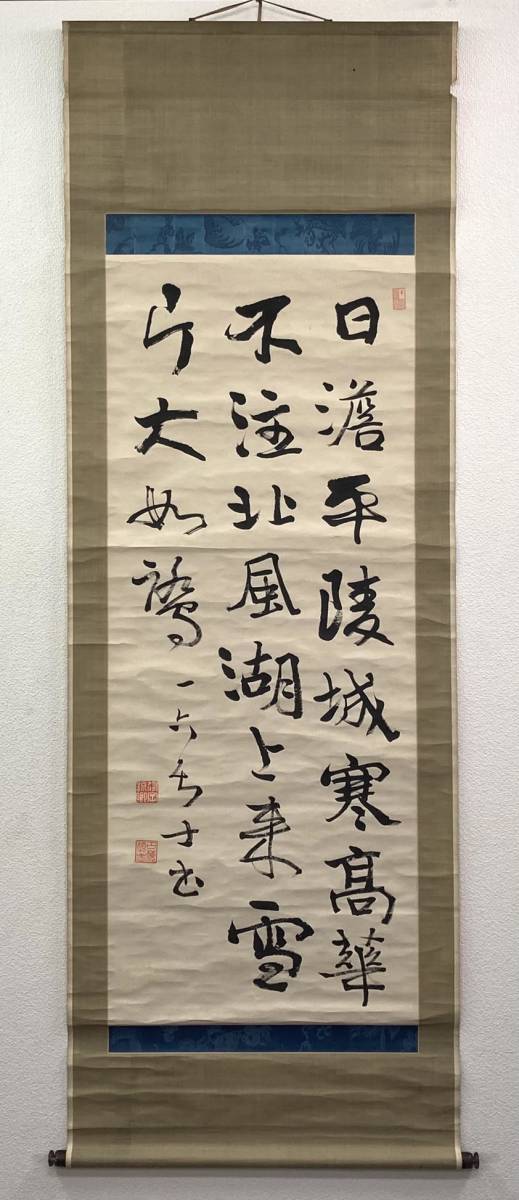 日澹平陵城寒高華
不注北風湖上来雪
片大如鵞一六居士書